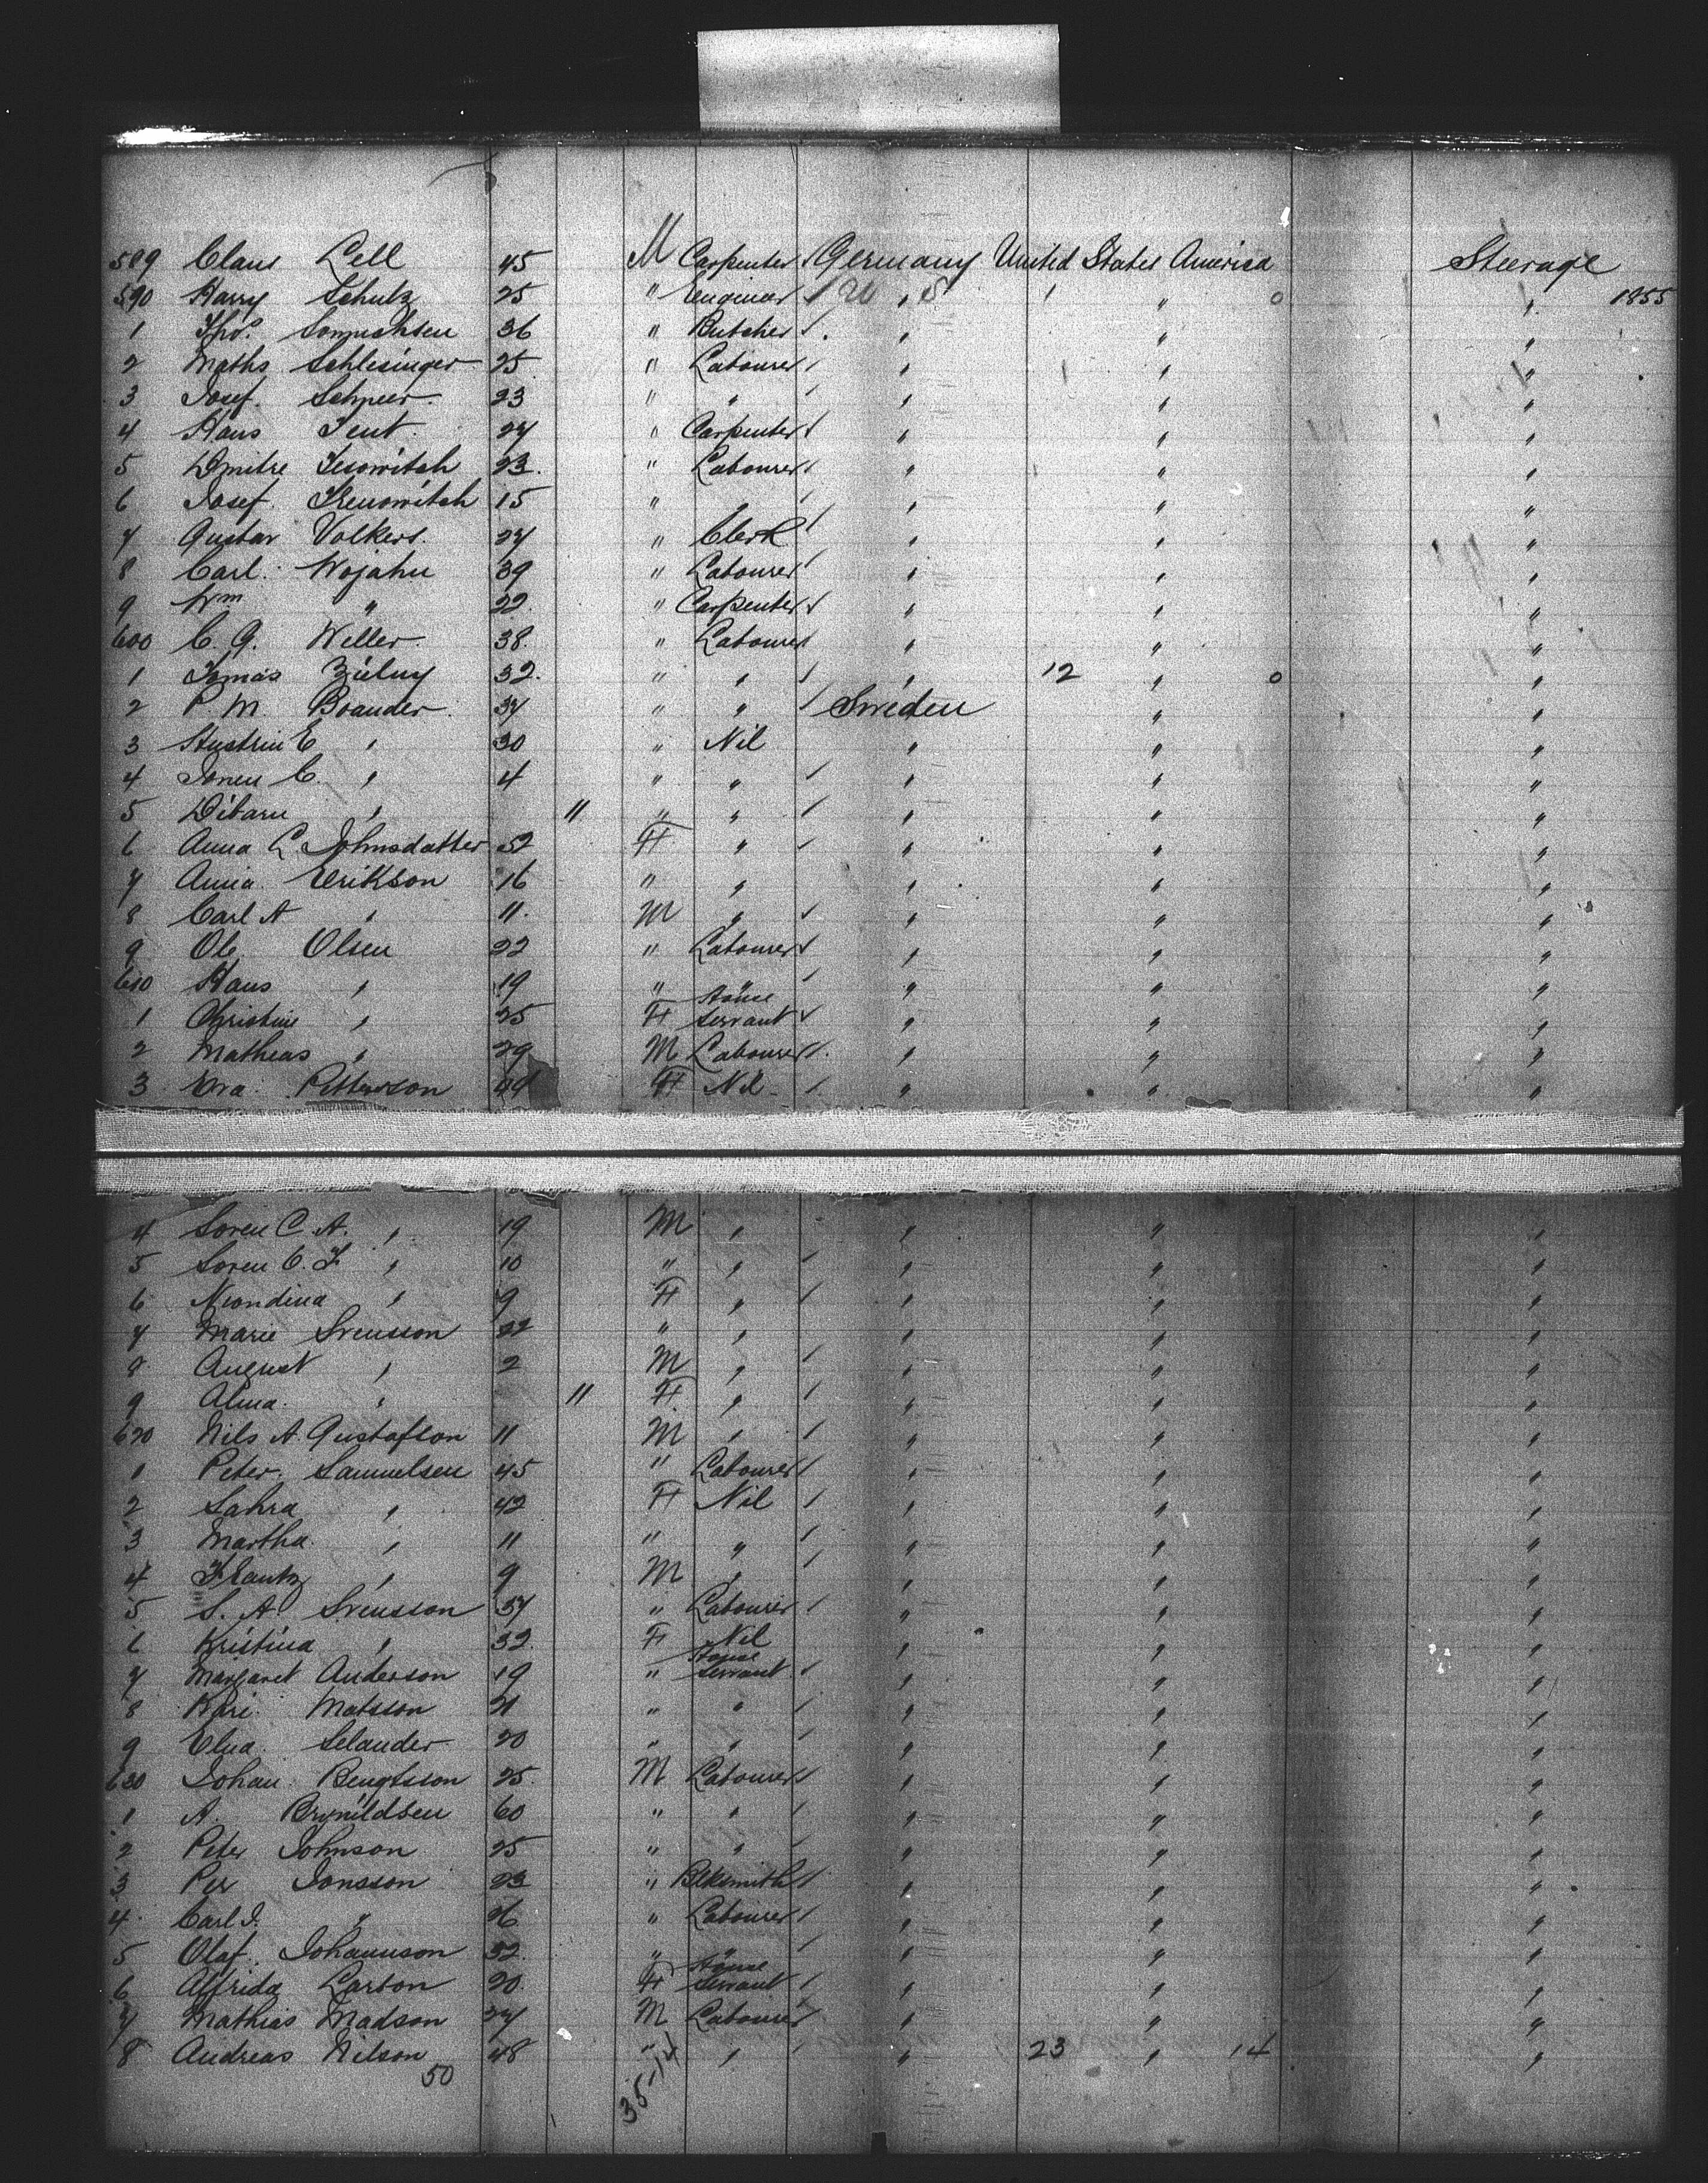 589 Claus Lell 45 M Carpenter Germany United States America Steerage
590 Harry Schutz 25 " Engineer / 20 " S 1 " 0 " 1855
1 Tho. 36 " Butcher / " " "
2 Maths Schlesinger 25 " Labourer / " " "
3 Josef Schpeer 23 " " / " " "
4 Hans Tent 27 " Carpenter / " " "
5 Dmitre Tesowitch 23. " Labourer / " " "
6 Josef 15 " " / " " "
7 Gustav Volkers. 27 " Clerk / " " "
8 Carl Wojahn 39 " Labourer / " " "
9 Wm " 22. " Carpenter / " " "
600 C. G. Weller 38. " Labourer / " " "
1 Tomas Zielny 32. " " / " 12 " 0 "
2 P M Brander 37 " " / Sweden " "
3 E " 30 " Nil " " "
4 C. " 4 " " / " " "
5 " 11 " " / " " "
6 Anna C. Johnsdatter 52 F " / " " "
7 Anna Erikson 16 " " " " "
8 Carl A " 11. M " / " " "
9 Ole Olsen 22 " Labourer / " " "
610 Hans " 19 " " / " " "
1 Christine " 25 F House Servant / " " "
2 Mathias " 29 M Labourer / " " "
3 Eva Petterson F Nil / " " "
4 Soren C. A. " 19 M " " " "
5 Soren C. F " 10 " " / " " "
6 " 9 F " / " " "
7 Marie Svensson 22 " " / " " "
8 August " 2 M " / " " "
9 Alma " 11 F " / " " "
620 Nils A. Gustafson 11 M " / " " "
1 Peter Samuelsen 45 " Labourer / " " "
2 Sahra " 42 F Nil / " " "
3 Martha " 11 " " / " " "
4 Frantz " 9 M " / " " "
5 S. A. Svensson 37 " Labourer / " " "
6 Kristina " 32. F Nil " " "
7 Margaret Anderson 19 " House Servant / " " "
8 Kari Matsson 21 " " / " " "
9 Elna Selander 20 " " / " " "
630 Johan Bengtsson 25. M Labourer / " " "
1 A. Brynildsen 60 " " / " " "
2 Peter Johnson 25 " " / " " "
3 Per Jonsson 23 " Blksmith / " " "
4 Carl J. " 26 " Labourer / " " "
5 Olaf Johannson 32. " " / " " "
6 Alfrida Larson 20. F House Servant / " " "
7 Mathias Madson 27 M Labourer " " "
8 Andreas Nilson 48 " " / " 23 " 14 "
50 35-14